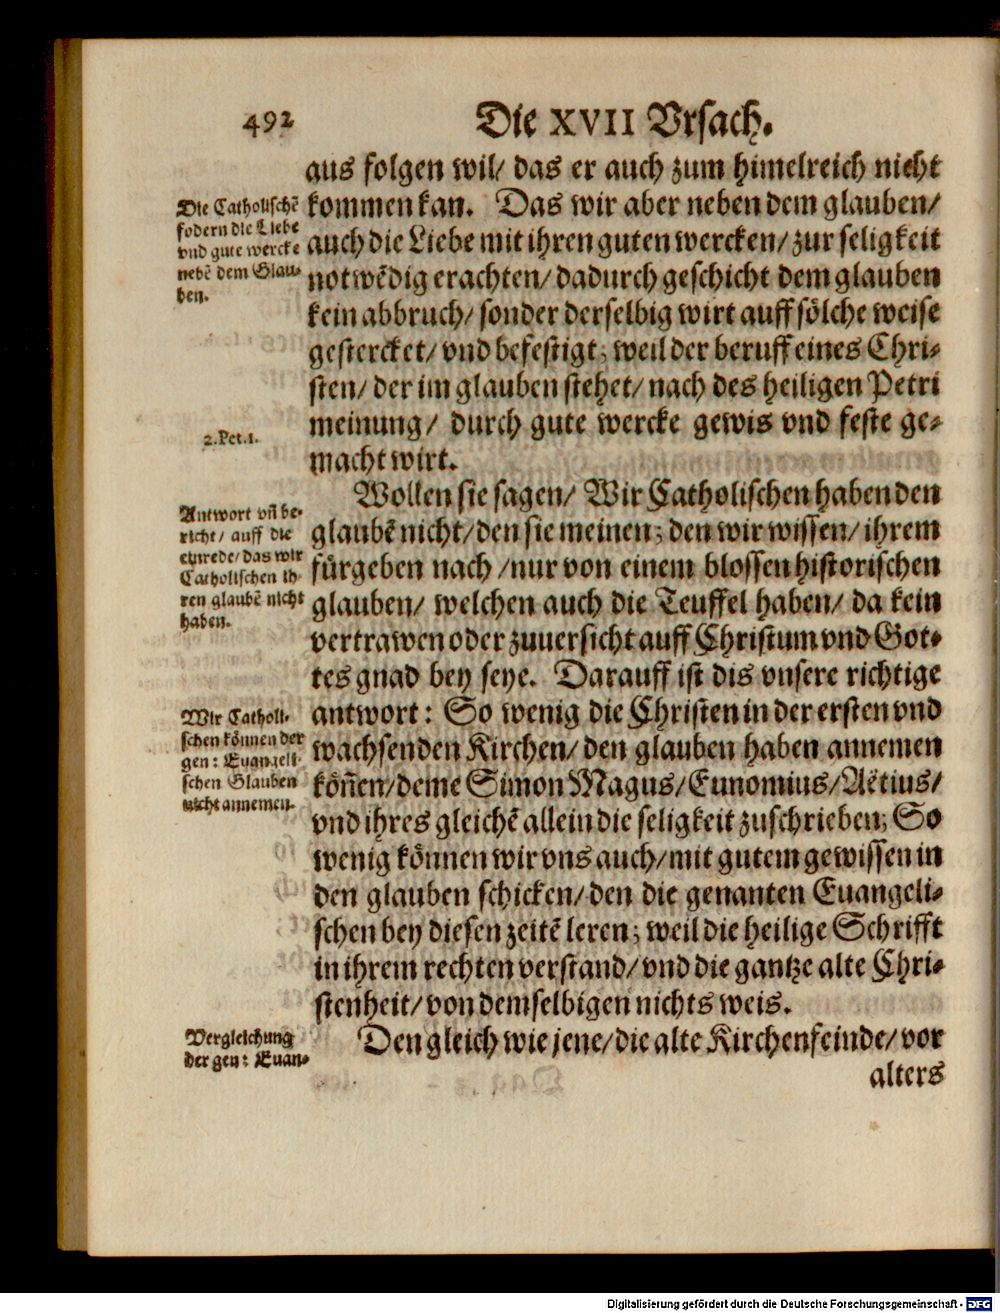 492
Die XVII Vrsach.
aus folgen wil/ das er auch zum himelreich nicht
kommen kan. Das wir aber neben dem glauben/
auch die Liebe mit ihren guten wercken/ zur seligkeit
notwẽdig erachten/ dadurch geschicht dem glauben
kein abbruch/ sonder derselbig wirt auff sölche weise
gestercket/ vnd befestigt; weil der beruff eines Chri-
sten/ der im glauben stehet/ nach des heiligen Petri
meinung/ durch gute wercke gewis vnd feste ge-
macht wirt.
Die Catholischẽ
fodern die Liebe
vnd gute wercke
nebẽ dem Glau-
ben.
2.Pet.1.
Wollen sie sagen/ Wir Catholischen haben den
glaubẽ nicht/ den sie meinen; den wir wissen/ ihrem
fürgeben nach/ nur von einem blossen historischen
glauben/ welchen auch die Teuffel haben/ da kein
vertrawen oder zuuersicht auff Christum vnd Got-
tes gnad bey seye. Darauff ist dis vnsere richtige
antwort: So wenig die Christen in der ersten vnd
wachsenden Kirchen/ den glauben haben annemen
köñen/ deme Simon Magus/ Eunomius/ Aëtius/
vnd ihres gleichẽ allein die seligkeit zuschrieben; So
wenig können wir vns auch/ mit gutem gewissen in
den glauben schicken/ den die genanten Euangeli-
schen bey diesen zeitẽ leren; weil die heilige Schrifft
in ihrem rechten verstand/ vnd die gantze alte Chri-
stenheit/ von demselbigen nichts weis.
Antwort vñ be-
richt/ auff die
einrede/ das wir
Catholischen ih-
ren glaubẽ nicht
haben.
Wir Catholi-
schen können der
gen: Euangeli-
schen Glauben
nicht annemen.
Den gleich wie jene/ die alte Kirchenfeinde/ vor
alters
Vergleichung
der gen: Euan-
Digitalisierung gefördert durch die Deutsche Forschungsgemeinschaft - DFG